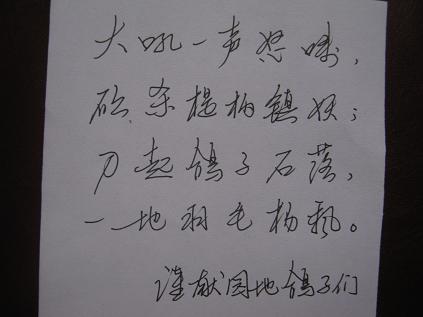 大吼一声怒嗔，
砍杀提柄镇妖；
刀起鸽子石落，
一地羽毛杨飘。
谨献园地鸽子们